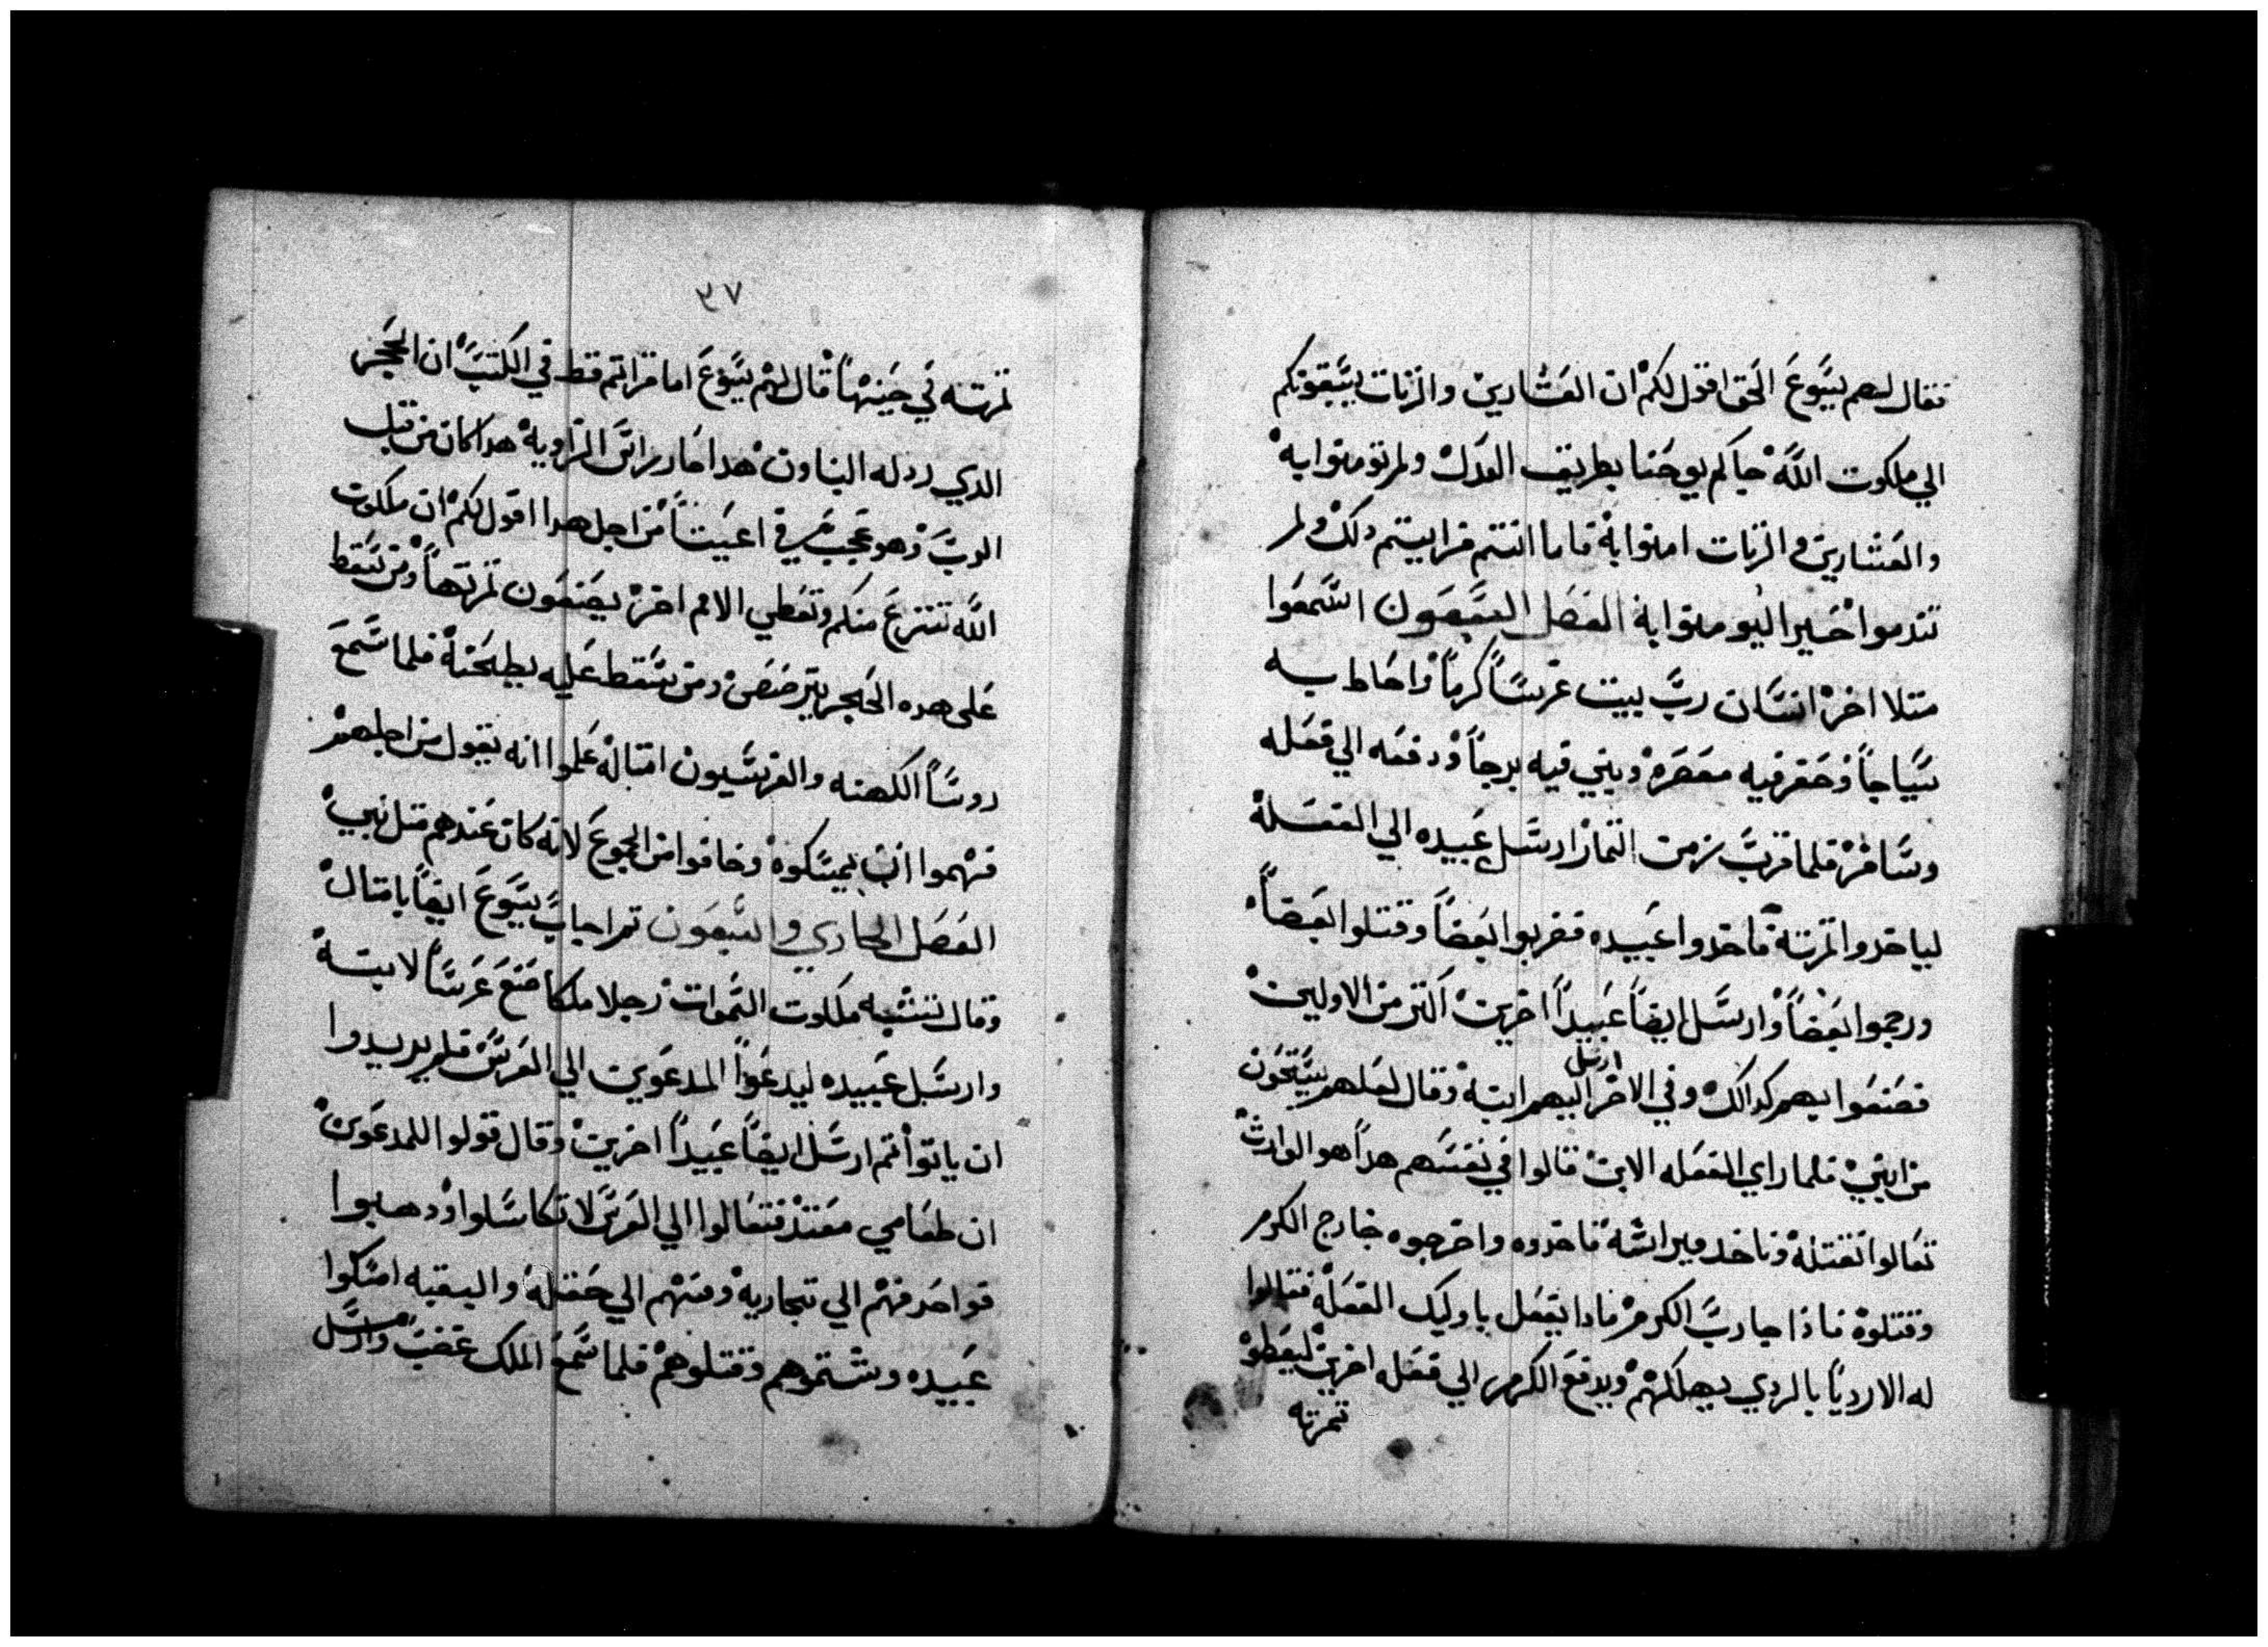 فقال لهم يسوع الحق اقول لكم ان العشارين والزنات يسبقونكم
الي ملكوت الله جاكم يوحنا بطريق العدل ولم تومنوا به
والعشارين والزنات امنوا به فاما انتم فرايتم دلك ولم
تندموا اخيرا ليومنوا به الفصل السبعون اسمعوا
متلا اخر انسان رب بيت غرس كرما واحاط به
سياجا وحفر فيه معصره وبني فيه برجا ودفعه الي فعله
وسافر فلما قرب زمن التمار ارسل عبيده الي الفعله
لياخدوا تمرته فاخدوا عبيده فضربوا بعضا وقتلوا بعضا
ورجموا بعضا وارسل ايضا عبيدا اخرين اكتر من الاولين
فصنعوا بهم كدالك وفي الاخر ارسل اليهم ابنه وقال لعلهم يستحون
من ابني فلما راي الفعله الابن قالوا في نفسهم هدا هو الوارث
تعالوا نقتله وناخد ميراثه فاخدوه واخرجوه خارج الكرم
وقتلوه فاذا جا رب الكرم فمادا يفعل باوليك الفعله فقالوا
له الارديا بالردي يهلكهم ويدفع الكرم الي فعله اخرين ليعطو
تمرته
٣٧
تمرته في حينها قال لهم يسوع اما قراتم قط في الكتب ان الحجر
الدي ردله البناون هدا صار راس الزاويه هدا كان من قبل
الرب وهو عجيب في اعيننا من اجل هدا اقول لكم ان ملكوت
الله تنتزع منكم وتعطي الامم اخر يصنعون تمرتها ومن سقط
على هده الحجر يترضض ومن سقط عليه يطحنه فلما سمع
روسا الكهنه والفريسيون امتاله علموا انه يقول من اجلهم
فهموا ان يمسكوه وخافوا من الجموع لانه كان عندهم متل نبي
الفصل الحادي والسبعون تم اجاب يسوع ايضا بامتال
وقال تشبه ملكوت السموات رجلا ملكا صنع عرسا لابنه
وارسل عبيده ليدعوا المدعوين الي العرس فلم يريدوا
ان ياتوا تم ارسل ايضا عبيدا اخرين وقال قولوا للمدعوين
ان طعامي معتد فتعالوا الي العرس لا تكاسلوا ودهبوا
فواحد فهم الي تجاريه ومنهم الي حقله والبقيه امسكوا
عبيده وشتموهم وقتلوهم فلما سمع الملك غضب وارسل